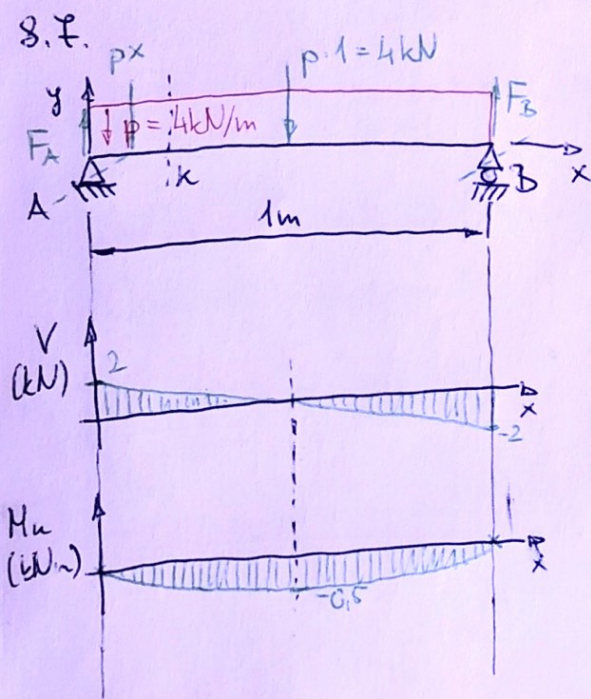 8.7.
px
p·1 = 4kN
y
F_A
p = 4kN/m
F_B
k
x
A
B
1m
V
(kN)
2
x
-2
(kNm)
x
-0,5